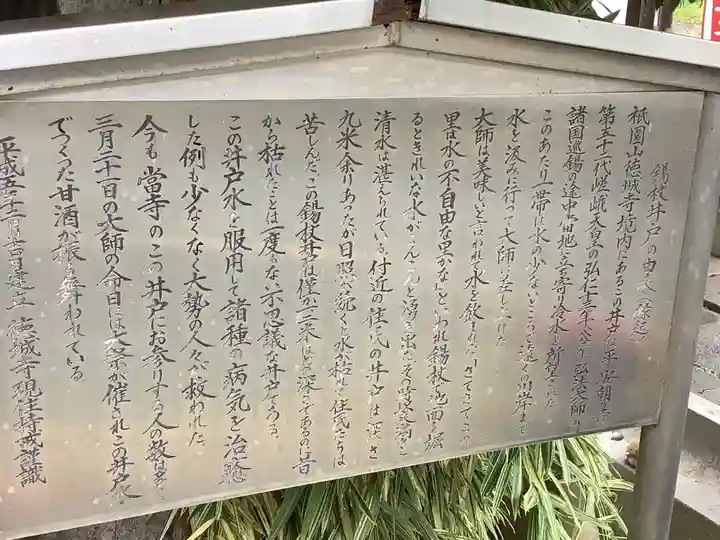 錫杖井戸の由来(縁起)
祇園山徳城寺境内にあるこの井戸は平安朝
第五十二代嵯峨天皇の弘仁 弘法大師が
諸国巡錫の途中当地に立ち寄り冷水を所望された
このあたり一帯は水の少ないところで遠く川岸まで
水を汲みに行って大師に差し上げた
大師は美味しいと言われて水を飲まれた さてさてこの
里は水の不自由な里かなといわれ錫杖で地面を掘
るときれいな水がこんこんと湧き出し
清水は湛えられている 付近の住民の井戸は深さ
九米余りあったが日照が続くと水が枯れて住民たちは
苦しんだ この錫杖井戸は僅か三米ほどの深さであるのに昔
から枯れたことは一度もない不思議な井戸である
この井戸水を服用して諸種の病気を治癒
した例も少なくなく大勢の人々が救われた
今も當寺のこの井戸にお参りする人の数は多く
三月二十一日の大師の命日には大祭が催されこの井戸水
でつくった甘酒が振る舞われている
平成五年 建立 徳城寺現住